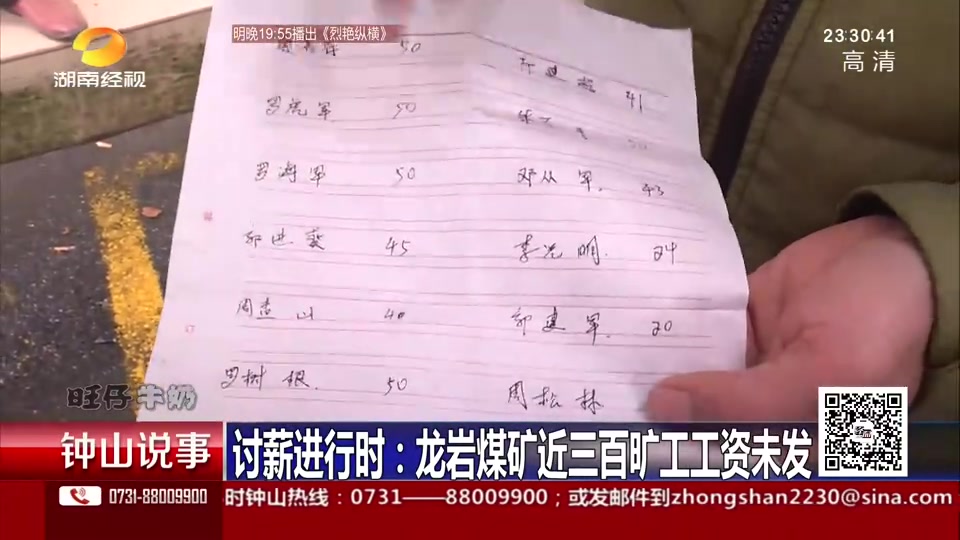 明晚19:55播出《烈艳纵横》
23:30:41
高清
湖南经视
50
41
罗虎军 50
罗海军 50
邓从军. 43
郭进爱 45
李光明. 24
周吉山 40
郭建军. 20
罗树根. 50
周松林
旺仔牛奶
钟山说事
讨薪进行时：龙岩煤矿近三百旷工工资未发
0731-88009900
时钟山热线：0731——88009900；或发邮件到zhongshan2230@sina.com